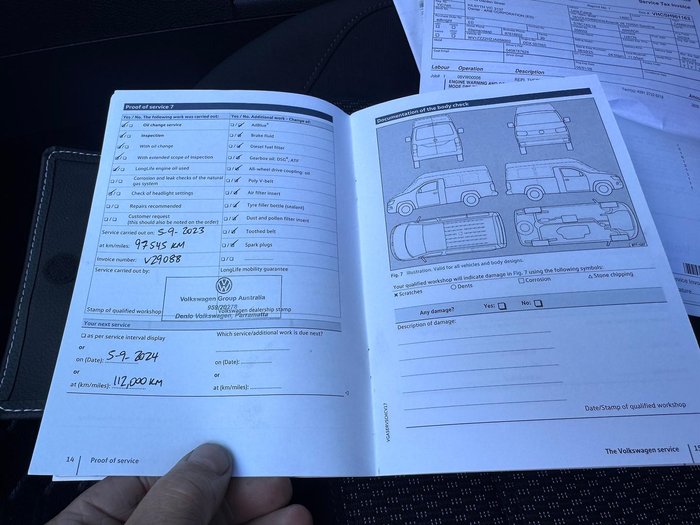 Service Tax Invoice
Labour Operation Description
ENGINE WARNING AND
Proof of service 7
Yes / No. The following work was carried out:
Oil change service
Inspection
With oil change
With extended scope of inspection
LongLife engine oil used
Corrosion and leak checks of the natural
gas system
Check of headlight settings
Repairs recommended
Customer request
(this should also be noted on the order)
Service carried out on: 5-9-2023
at km/miles: 97545 KM
Invoice number: V29088
Service carried out by:
Yes / No. Additional work - Change of:
AdBlue®
Brake fluid
Diesel fuel filter
Gearbox oil: DSG®, ATF
All-wheel drive coupling: oil
Poly V-belt
Air filter insert
Tyre filler bottle (sealant)
Dust and pollen filter insert
Toothed belt
Spark plugs
LongLife mobility guarantee
Volkswagen Group Australia
Denlo Volkswagen, Parramatta
Stamp of qualified workshop
Volkswagen dealership stamp
Your next service
as per service interval display
or
on (Date): 5-9-2024
or
at (km/miles): 112,000 KM
Which service/additional work is due next?
on (Date):
or
at (km/miles):
14 Proof of service
Documentation of the body check
Fig. 7 Illustration. Valid for all vehicles and body designs.
Your qualified workshop will indicate damage in Fig. 7 using the following symbols:
× Scratches ○ Dents □ Corrosion △ Stone chipping
Any damage? Yes: No:
Description of damage:
Date/Stamp of qualified workshop
The Volkswagen service